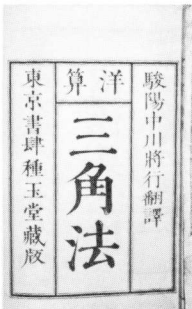 駿陽中川將行翻譯
洋算
三角法
東京書肆種玉堂藏版